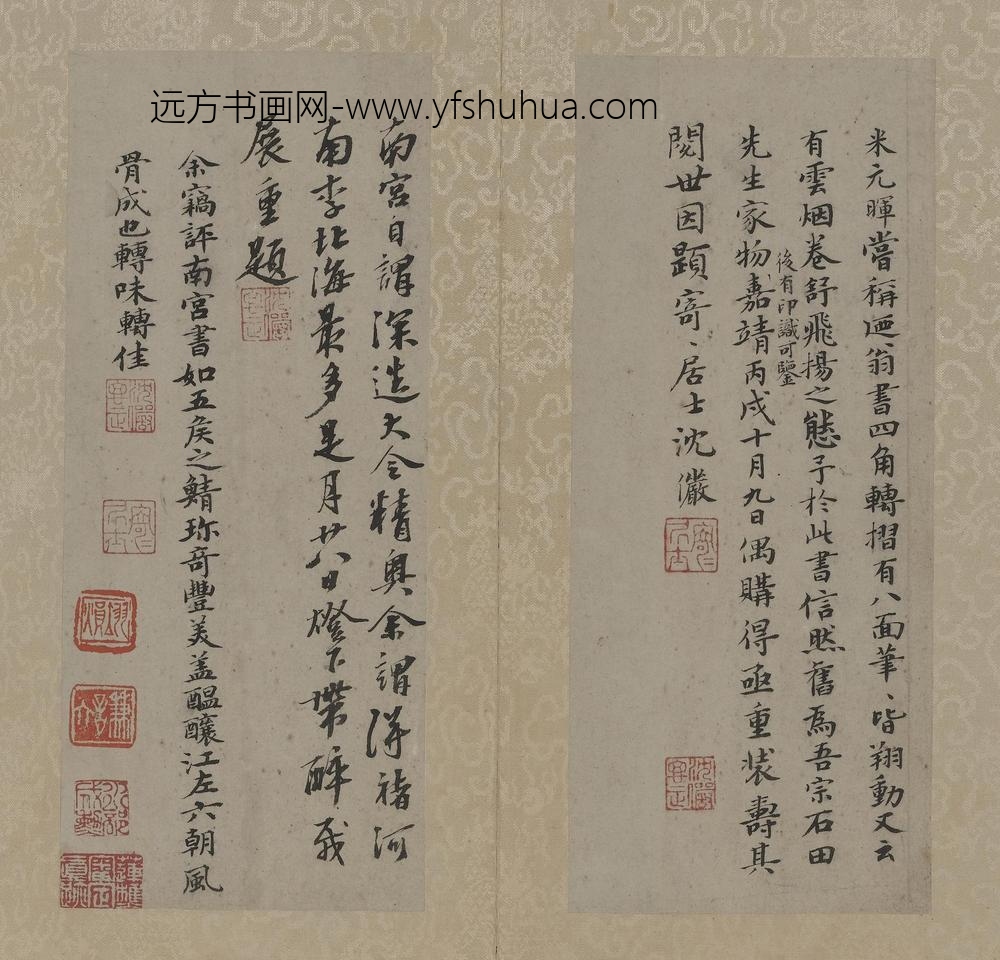 远方书画网-www.yfshuhua.com
米元暉嘗稱迺翁書四角轉摺有八面筆、皆翔動又云
有雲烟卷舒飛揚之態予於此書信然舊為吾宗石田
先生家物
後有印識可鑒
嘉靖丙戌十月九日偶購得亟重装壽其
閱世因題寄、居士沈
南宮自謂深造大令精奥余謂得褚河
南李北海最多是月廿八日燈下帶醉我
展重題
余竊評南宮書如五矦之鯖珎奇豐美盖醖釀江左六朝風
骨成也轉味轉佳